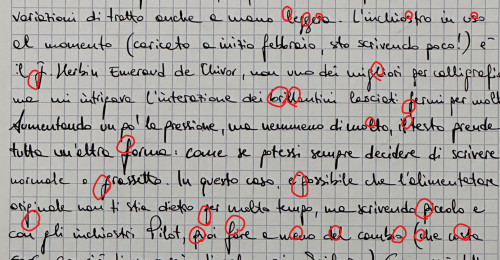 variazioni di tratto anche a mano leggera. L'inchiostro in uso
al momento (caricato a inizio febbraio, sto scrivendo poco!) è
il J. Herbin Emeraud de Chivor, non uno dei migliori per calligrafia
ma mi intrigava l'interazione dei brillantini lasciati fermi per molt
Aumentando un po' la pressione, ma nemmeno di molto, il testo prende
tutta un'altra forma: come se potessi sempre decidere di scrivere
normale o grassetto. In questo caso, è possibile che l'alimentatore
originale non ti stia dietro per molto tempo, ma scrivendo piccolo e
con gli inchiostri Pilot, puoi fare a meno del cambio (che costa